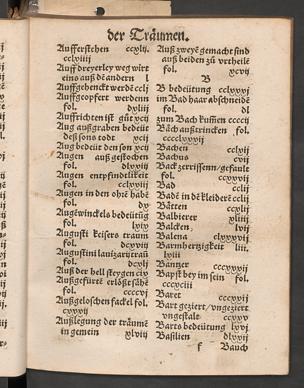 der Träumen.
Aufferstehen ccxlij.
cclviiij
Auff dreyerley weg wirt
eins auß dē andern l
Auffgehenckt werdē ccli
Auffgeopfert werdenn
fol. dxliij
Auffrichten ist gůt xcij
Aug außgraben bedeüt
deß sons todt xcij
Aug bedeüt den son xcj
Augen auß gestochen
fol. dlxxij
Augen entpfindtlikeit
fol. cclxviij
Augen in den ohrē habē
fol. dv
Augēwinckels bedeütūg
fol. lviij
Augusti keisers traum
fol. dcxviij
Augustini lauizarij traū
fol. dcxij
Auß der hell steygen civ
Außgefürt erlößt sähē
fol. cccciij
Außgeloschen fackel fol.
cxxxvj
Außlegung der träumē
in gemein xlviij
Auß zweyē gemacht sind
auß beiden zů vrtheilē
fol. xcvij
B
B bedeütung cclxxxvj
im Bad haar abschneidē
fol. dl
zum Bach kummen
Bäch außtrincken fol.
Bachen cclvj
Bachus cvij
Back zerrissenn/gefault
fol.
Bad cclij
Badē in dē kleiderē cclij
Bätten cclj
Balbierer xliij
Balcken, liij
Balena
Barmhertzigkeit liij.
lviij
Banner
Bapst bey im sein fol.
Baret
Bart geziert/vngeziert
vngestalt
Barts bedeütung lxvj
Basilien dlvij
f Bauch